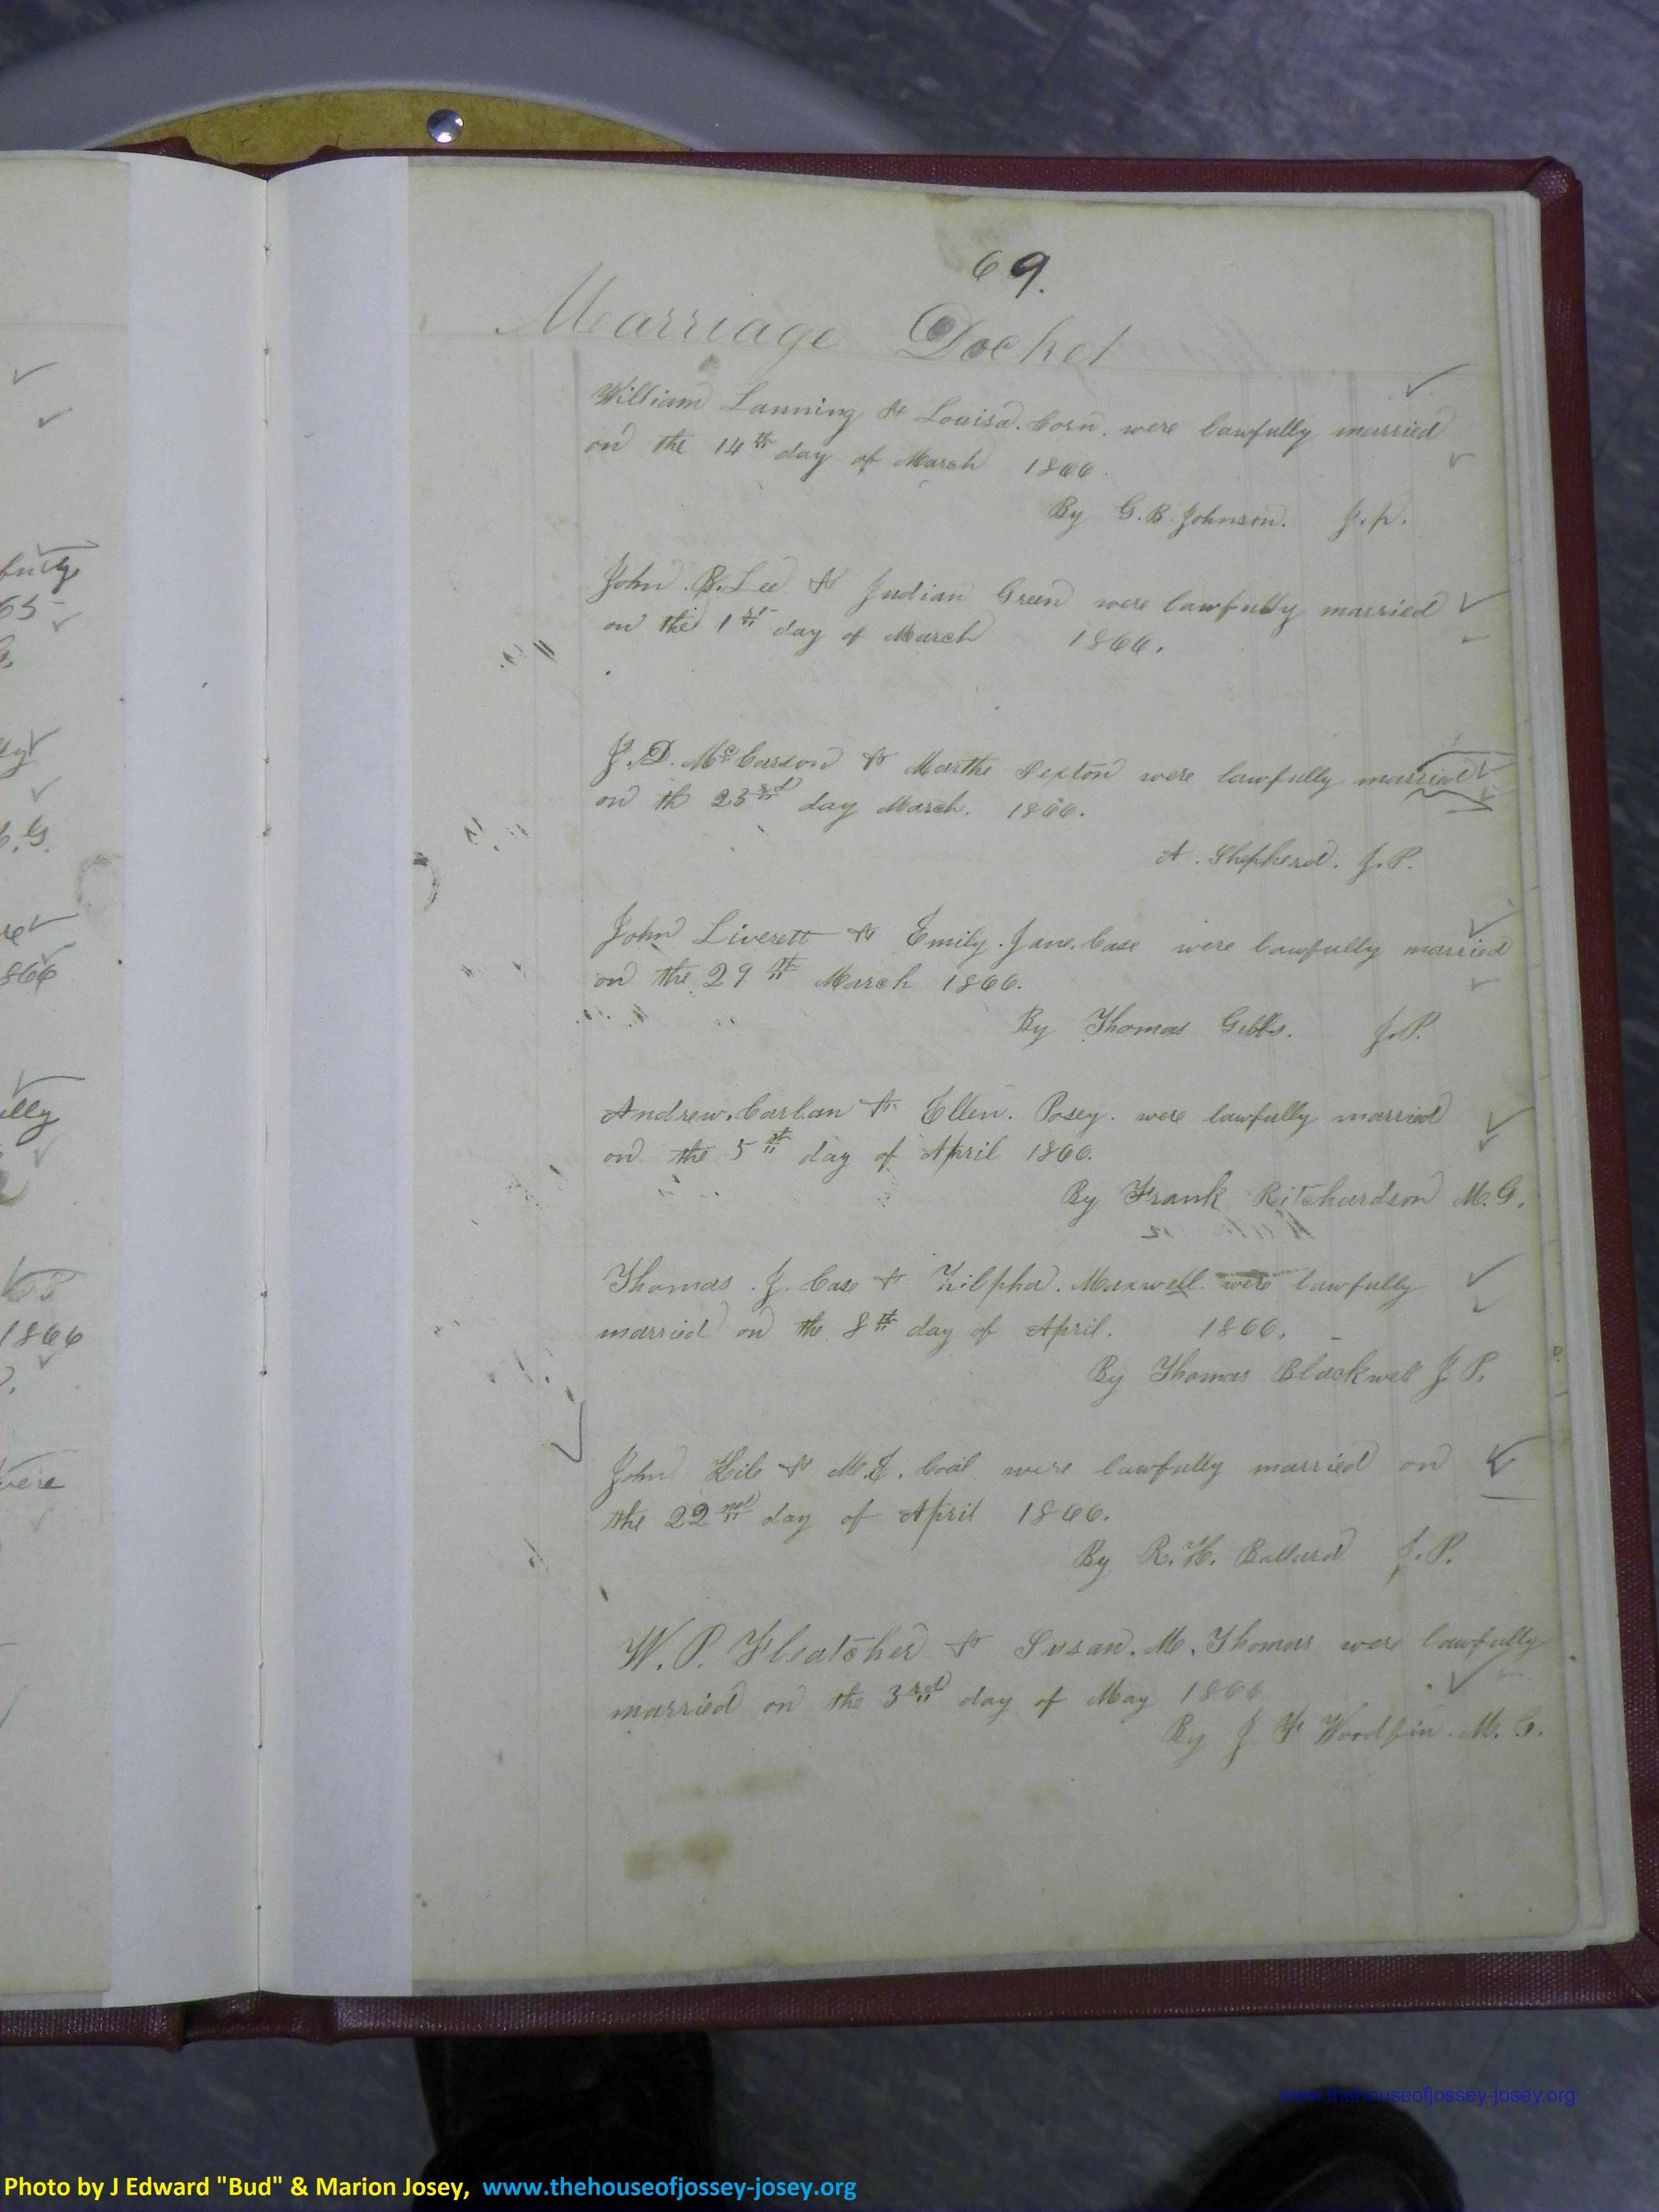 69.
Marriage Docket
William Lanning & Louisa. Corn. were lawfully married
on the 14th day of March 1866.
By G. B. Johnson. J.p.
John. B. Lee & Judian Green were lawfully married
on the 1st day of March 1866.
J. D. McCarson & Marthe Sexton were lawfully married
on th 23rd day March. 1866.
A. Shepherd. J.P.
John Liverett & Emily. Jane. Case were lawfully married
on the 29th March 1866.
By Thomas Gibbs. J.P.
Andrew. Carlan & Ellen. Posey. were lawfully married
on the 5th day of April 1866.
By Frank Ritchardson M.G.
Thomas. J. Case & Zilpha. Maxwell were lawfully
married on the 8th day of April. 1866.
By Thomas Blackwell J.P.
John & M.E. were lawfully married on
the 22nd day of April 1866.
By R. H. Ballard J.P.
W. P. Fleatcher & Susan. M. Thomas were lawfully
married on the 3rd day of May 1866
By J F Woodfin. M. G.
65
866
1866
were
www.thehouseofjossey-josey.org
Photo by J Edward "Bud" & Marion Josey, www.thehouseofjossey-josey.org